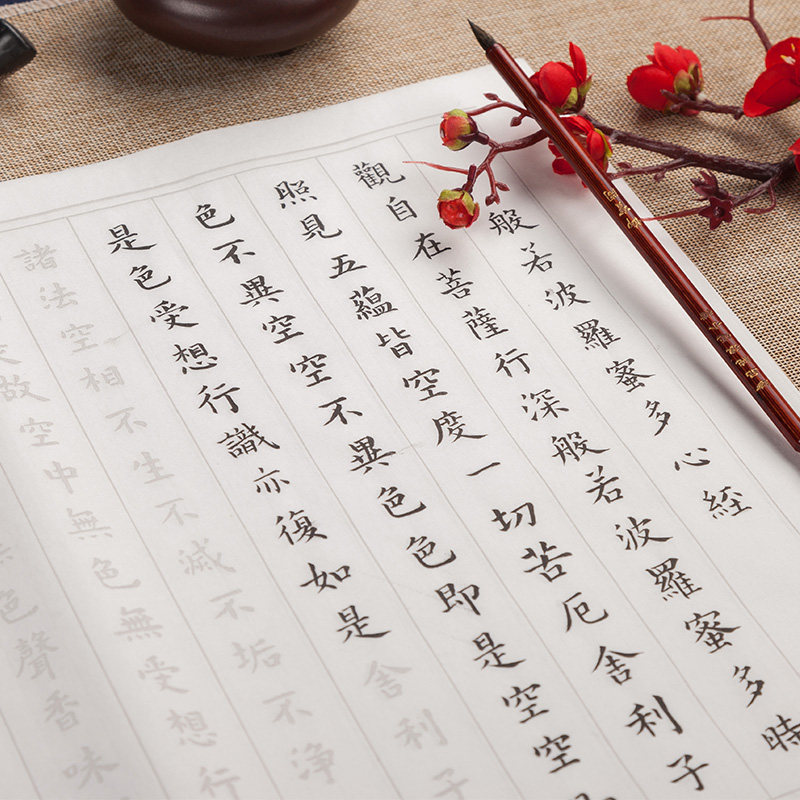 般若波羅蜜多心經
觀自在菩薩行深般若波羅蜜多時
照見五蘊皆空度一切苦厄舍利子
色不異空空不異色色即是空空
是色受想行識亦復如是舍利子
諸法空相不生不滅不垢不淨
故空中無色無受想行
色聲香味